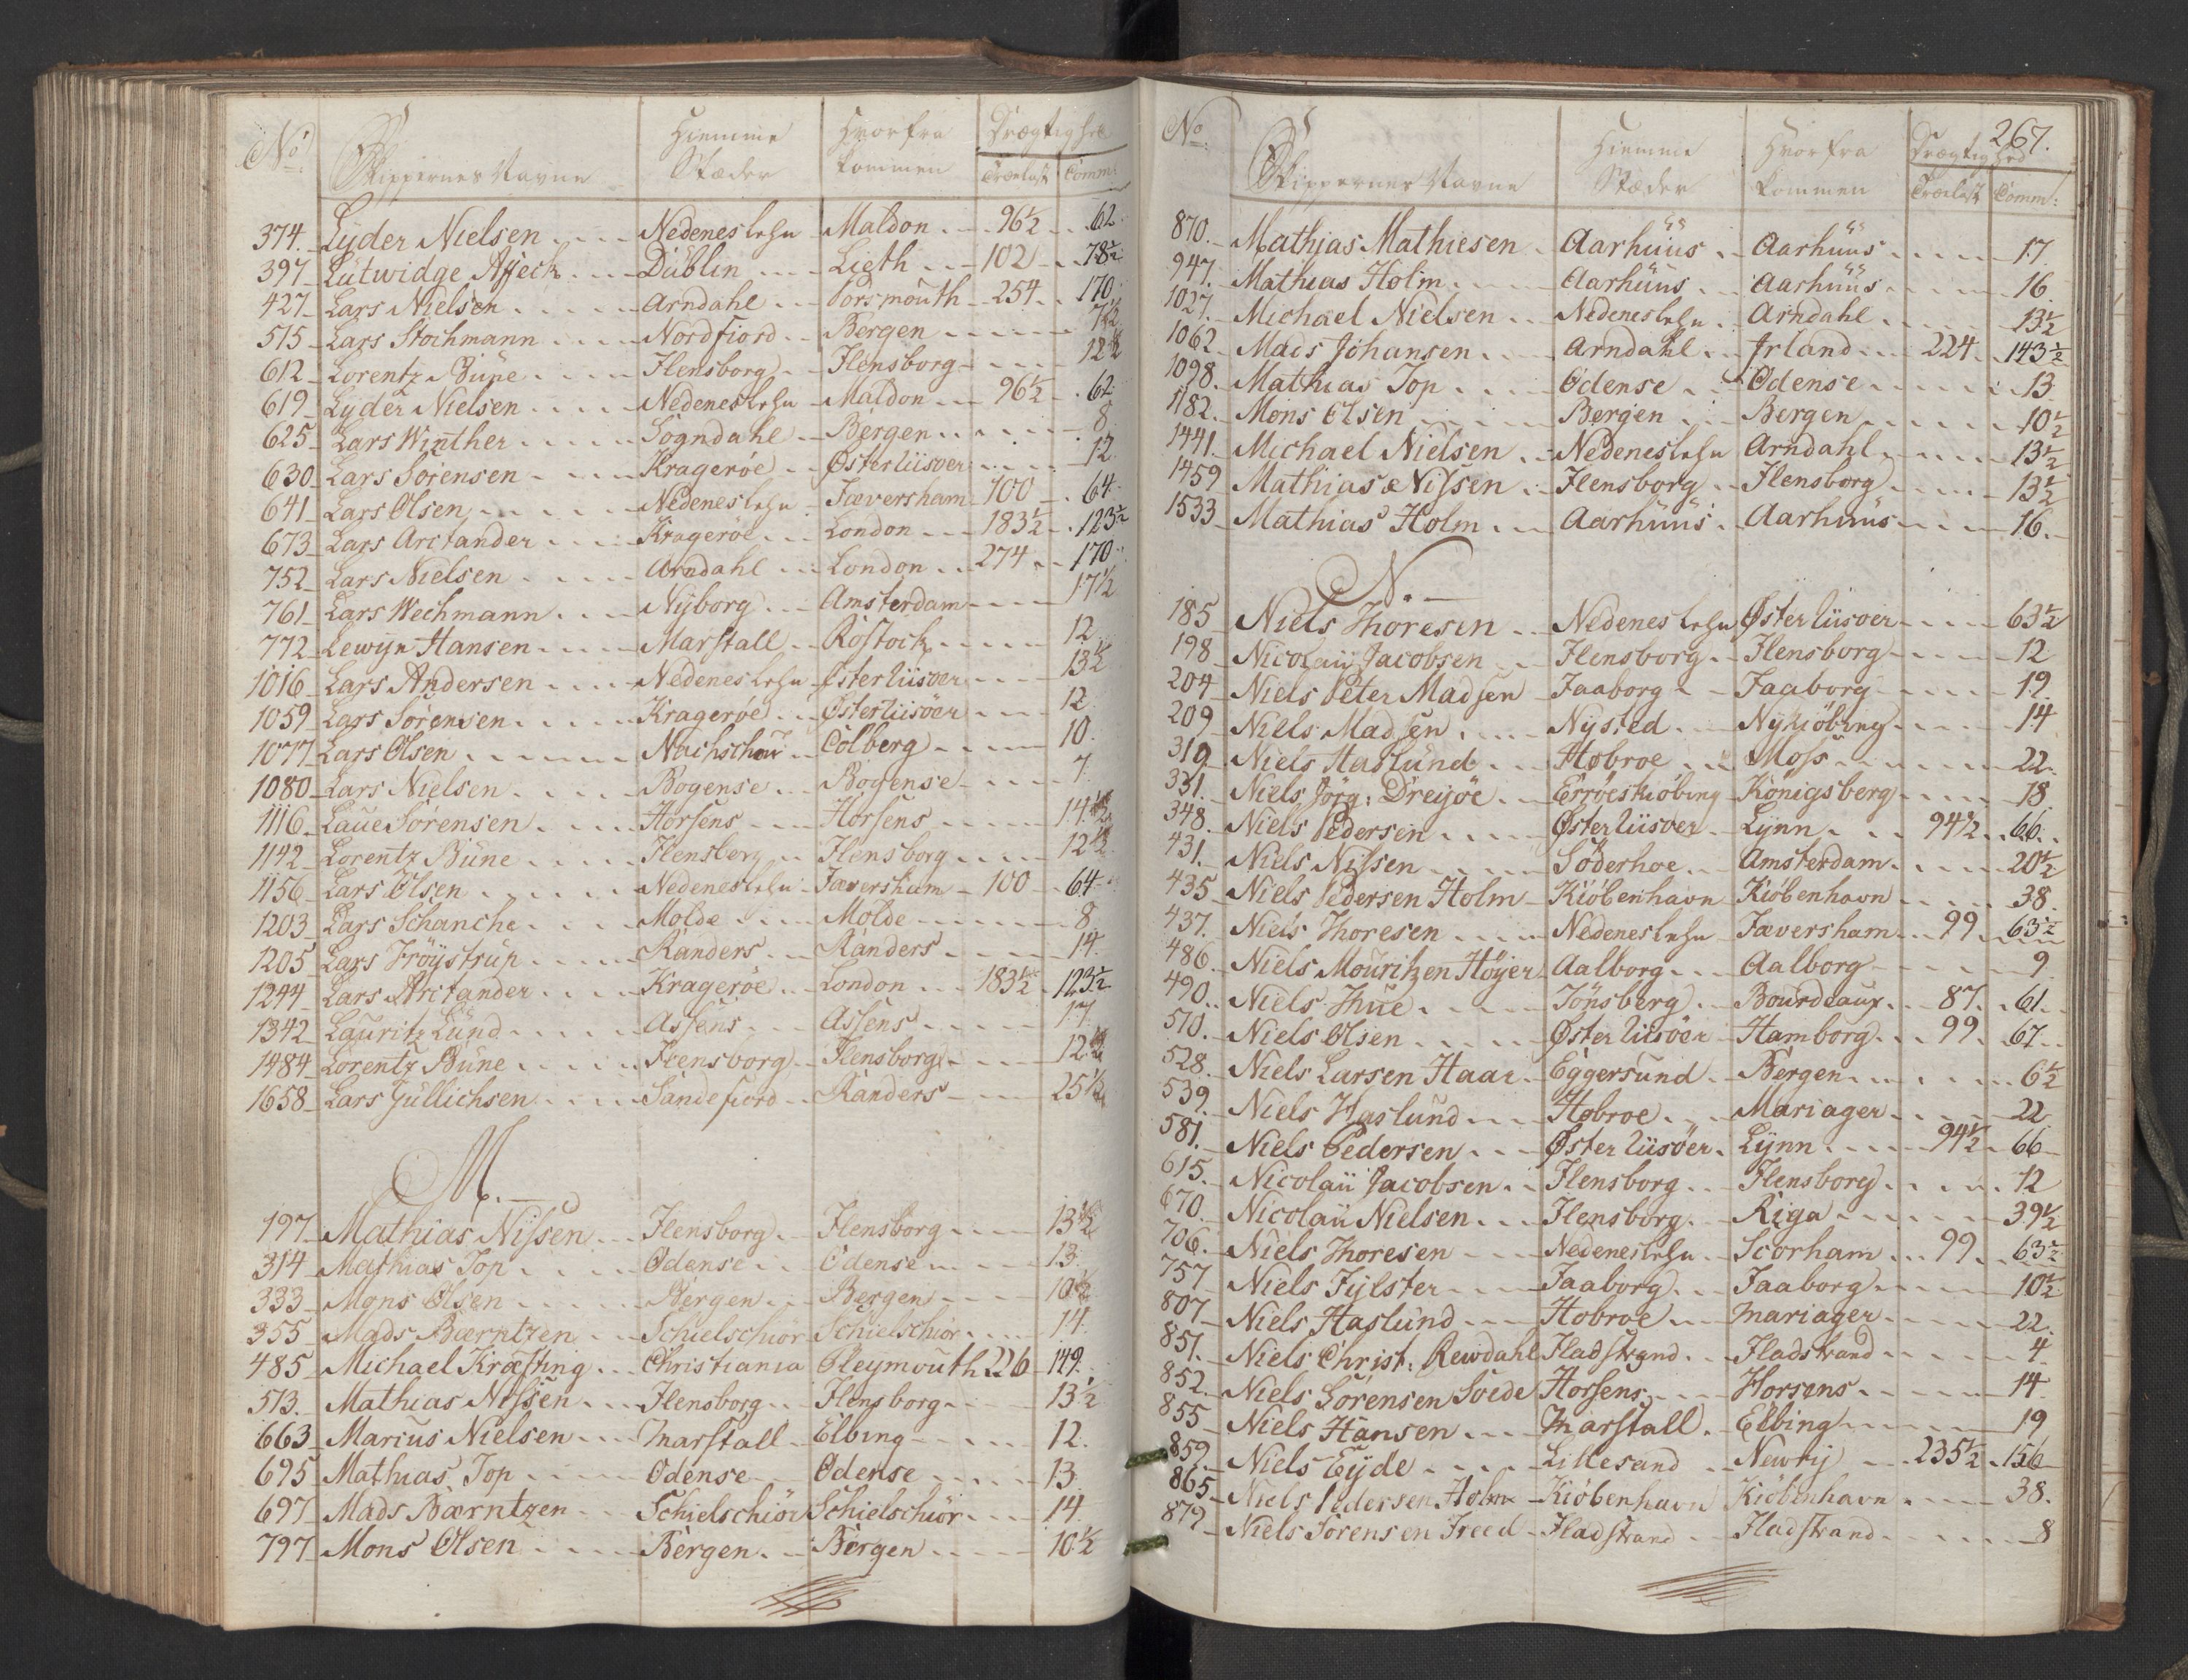 No. Skippernes Navne Hiemme Stæder Hvorfra kommen Drægtighed Trælast Comm:
374. Lyder Nielsen Nedeneslehn Maldon 96½ 62
397 Lutwidge Affleck Dublin Lieth 102 78½
427 Lars Nielsen Arndahl Porsmouth 254 170
515 Lars Stochmann Nordfiord Bergen 7½
612 Lorentz Büne Flensborg Flensborg 12½
619 Lyder Nielsen Nedeneslehn Maldon 96½ 62
625 Lars Winther Sogndahl Bergen 8
630 Lars Sørensen Kragerøe Østerliisoer 12
641 Lars Olsen Nedeneslehn Fæversham 100 64
673 Lars Arctander Kragerøe London 183½ 123½
752 Lars Nielsen Arndahl London 274 170
761 Lars Wechmann Nyborg Amsterdam 17½
772 Lewijn Hansen Marstall Rostock 12
1016 Lars Andersen Nedeneslehn Østerliisoer 13½
1059 Lars Sørensen Kragerøe Østerliisöer 12
1077 Lars Olsen Nachschou Colberg 10.
1080 Lars Nielsen Bogense Bogense 7
1116 Laue Sørensen Horsens Horsens 14½
1142 Lorentz Büne Flensborg Flensborg 12½
1156 Lars Olsen Nedeneslehn Fæversham 100 64
1203 Lars Schanche Molde Molde 8
1205 Lars Frøystrup Randers Randers 14
1244 Lars Arctander Kragerøe London 183½ 123½
1342 Lauritz Lund Assens Assens 17
1484 Lorentz Büne Flensborg Flensborg 12½
1658 Lars Jullichsen Sandefiord Randers 25½
M.
197 Mathias Nissen Flensborg Flensborg 13½
314 Mathias Top Odense Odense 13
333 Mons Olsen Bergen Bergen 10½
355 Mads Bærntzen Schielschiør Schielschiør 14
485 Michael Kræfting Christiania Pleymouth 226 149
513. Mathias Nissen Flensborg Flensborg 13½
663 Marius Nielsen Marstall Elbing 12.
695 Mathias Top Odense Odense 13
697 Mads Bærntzen Schielschiör Schielschiör 14
797 Mons Olsen Bergen Bergen 10½
267.
No. Skippernes Navne Hiemme Stæder Hvorfra kommen Drægtighed Trælast Comm:
870. Mathias Mathiesen Aarhuus Aarhuus 17
947. Mathias Holm Aarhuus Aarhuus 16
1027. Michael Nielsen Nedeneslehn Arndahl 13½
1062 Mads Johansen Arndahl Irland 224 143½
1098. Mathias Top Odense Odense 13
1182. Mons Olsen Bergen Bergen 10½
1441. Michael Nielsen Nedeneslehn Arndahl 13½
1459 Mathias Nissen Flensborg Flensborg 13½
1533 Mathias Holm Aarhuus Aarhuus 16.
N.
185 Niels Thoresen Nedeneslehn Østerliisoer 63½
198 Nicolaij Jacobsen Flensborg Flensborg 12
204 Niels Peter Madsen Faaborg Faaborg 19
209 Niels Madsen Nysted Nykiöbing 14
310. Niels Haslund Hobroe Moss 22
331. Niels Jörg: Dreijöe Erröeskiöbing Königsberg 18
348. Niels Pedersen Østerliisoer Lynn 94½ 66
431. Niels Nissen Söderhoe Amsterdam 20½
435 Niels Pedersen Holm Kiöbenhavn Kiöbenhavn 38
437. Niels Thoresen Nedeneslehn Fæversham 99 63½
486. Niels Mouritzen Høyer Aalborg Aalborg 9
490. Niels Thue Tönsberg Bourdeaux 87 61
510. Niels Olsen Østerliisöer Hamborg 99 67
528. Niels Larsen Haar Eggersund Bergen 6½
539. Niels Haslund Hobroe Mariager 22
581. Niels Pedersen Østerliisöer Lynn 94½ 66
615. Nicolaij Jacobsen Flensborg Flensborg 12
670. Nicolaij Nielsen Flensborg Riga 39½
706. Niels Thoresen Nedeneslehn Scorham 99 63½
757 Niels Fylster Faaborg Faaborg 10½
807 Niels Haslund Hobroe Mariager 22
851. Niels Christ: Rewdahl Fladstrand Fladstrand 4
852. Niels Sörensen Soede Horsens Horsens 14
855 Niels Hansen Marstall Elbing 19
859. Niels Eyde Lillesand Newry 235½ 156
865 Niels Pedersen Holm Kiöbenhavn Kiöbenhavn 38.
879 Niels Sörensen Freed Fladstrand Fladstrand 8